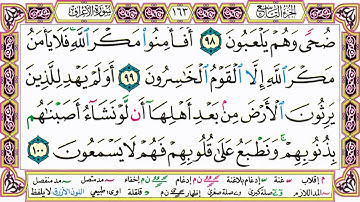 سورة الأعراف ١٦٣ الجزء التاسع
ضُحًى وَهُمْ يَلْعَبُونَ ٩٨ أَفَأَمِنُوا۟ مَكْرَ ٱللَّهِ فَلَا يَأْمَنُ
مَكْرَ ٱللَّهِ إِلَّا ٱلْقَوْمُ ٱلْخَـٰسِرُونَ ٩٩ أَوَلَمْ يَهْدِ لِلَّذِينَ
يَرِثُونَ ٱلْأَرْضَ مِنۢ بَعْدِ أَهْلِهَآ أَن لَّوْ نَشَآءُ أَصَبْنَـٰهُم
بِذُنُوبِهِمْ ۚ وَنَطْبَعُ عَلَىٰ قُلُوبِهِمْ فَهُمْ لَا يَسْمَعُونَ ١٠٠